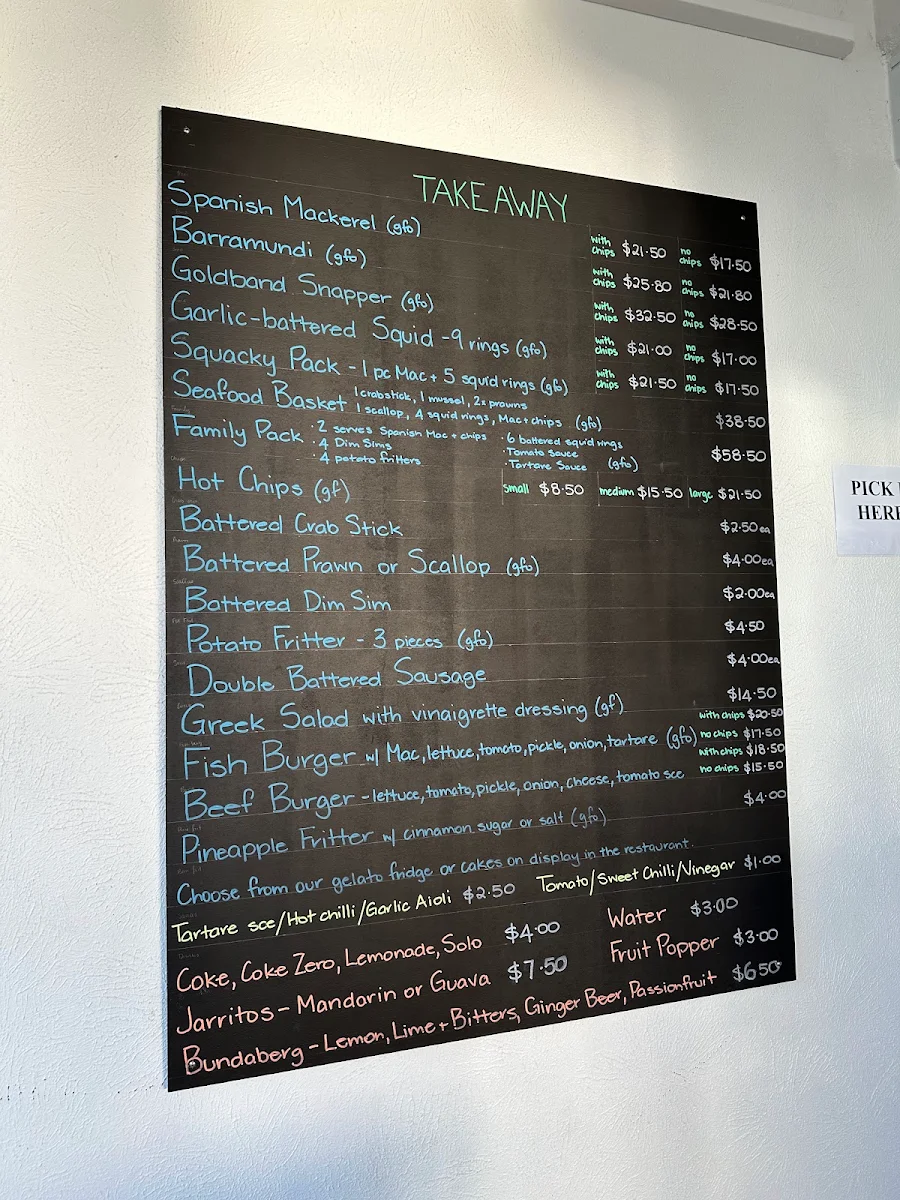 TAKE AWAY
Spanish Mackerel (gfo) with chips $21.50 no chips $17.50
Barramundi (gfo) with chips $25.80 no chips $21.80
Goldband Snapper (gfo) with chips $32.50 no chips $28.50
Garlic-battered Squid - 9 rings (gfo) with chips $21.00 no chips $17.00
Squacky Pack - 1 pc Mac + 5 squid rings (gfo) with chips $21.50 no chips $17.50
Seafood Basket 1 crabstick, 1 mussel, 2x prawns
1 scallop, 4 squid rings, Mac + chips (gfo) $38.50
Family Pack · 2 serves Spanish Mac + chips · 6 battered squid rings $58.50
· 4 Dim Sims · Tomato Sauce
· 4 potato fritters · Tartare Sauce (gfo)
Hot Chips (gf) small $8.50 medium $15.50 large $21.50
Battered Crab Stick $2.50 ea
Battered Prawn or Scallop (gfo) $4.00 ea
Battered Dim Sim $2.00 ea
Potato Fritter - 3 pieces (gfo) $4.50
Double Battered Sausage $4.00 ea
Greek Salad with vinaigrette dressing (gf) $14.50
Fish Burger w/ Mac, lettuce, tomato, pickle, onion, tartare (gfo) with chips $20.50
no chips $17.50
Beef Burger - lettuce, tomato, pickle, onion, cheese, tomato sce with chips $18.50
no chips $15.50
Pineapple Fritter w/ cinnamon sugar or salt (gfo) $4.00
Choose from our gelato fridge or cakes on display in the restaurant.
Tartare sce/Hot chilli/Garlic Aioli $2.50 Tomato/Sweet Chilli/Vinegar $1.00
Coke, Coke Zero, Lemonade, Solo $4.00 Water $3.00
Jarritos - Mandarin or Guava $7.50 Fruit Popper $3.00
Bundaberg - Lemon, Lime + Bitters, Ginger Beer, Passionfruit $6.50
PICK
HERE